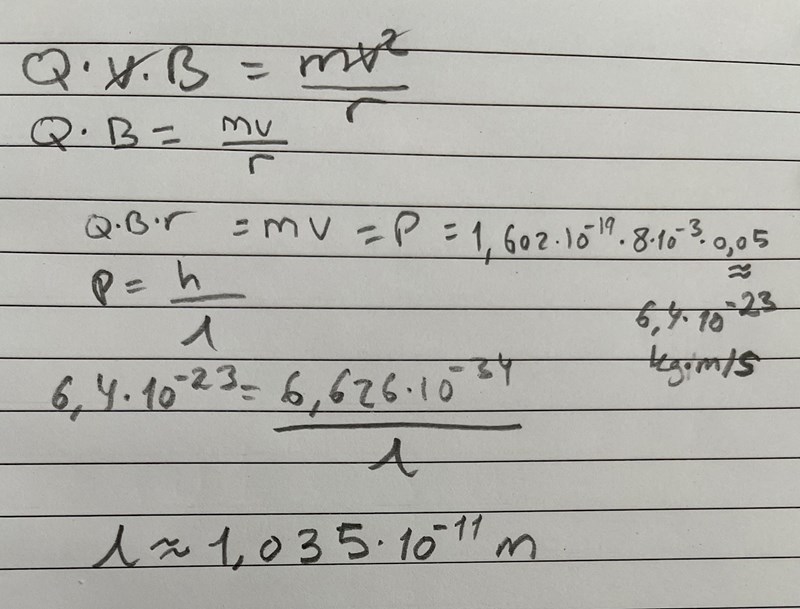 Q · v · B = mv² / r
Q · B = mv / r
Q·B·r = mv = P = 1,602·10⁻¹⁹·8·10⁻³·0,05
≈
6,4·10⁻²³
kg·m/s
P = h / λ
6,4·10⁻²³ = 6,626·10⁻³⁴ / λ
λ ≈ 1,035·10⁻¹¹ m